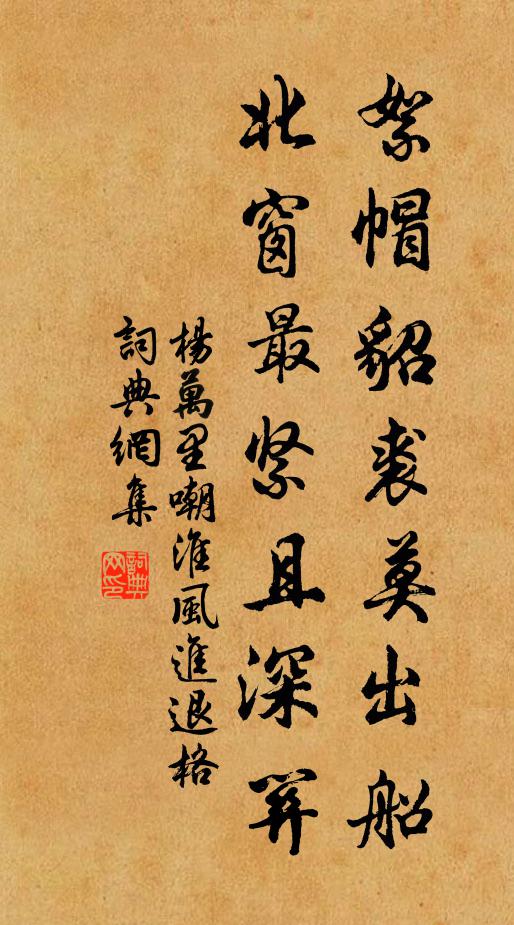 絮帽貂裘莫出船
北窗最紧且深关
楊萬里嘲淮風進退格
詞典網集
詞典
网印